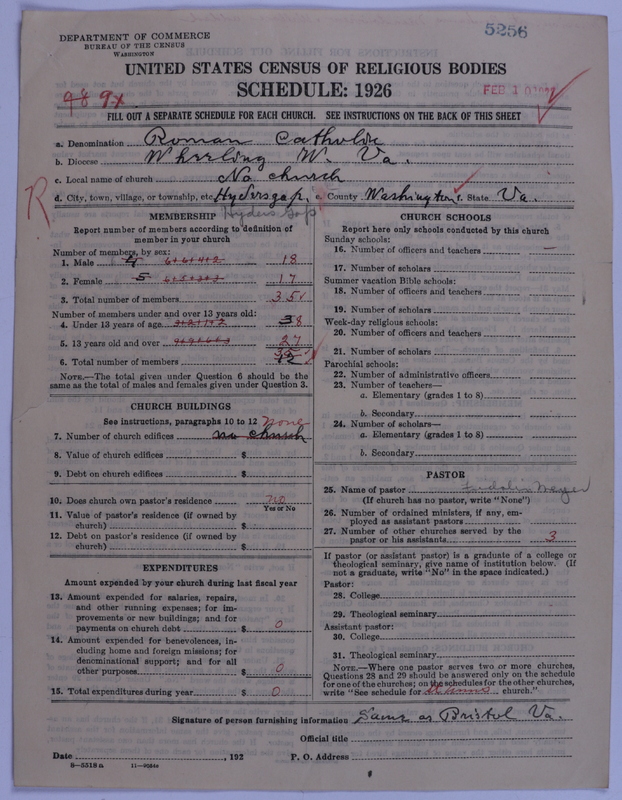 5256
DEPARTMENT OF COMMERCE
BUREAU OF THE CENSUS
WASHINGTON
UNITED STATES CENSUS OF RELIGIOUS BODIES
SCHEDULE: 1926
FEB 10
98 9x
FILL OUT A SEPARATE SCHEDULE FOR EACH CHURCH. SEE INSTRUCTIONS ON THE BACK OF THIS SHEET
a. Denomination Roman Catholic
b. Diocese Wheeling W. Va.
c. Local name of church No church
R d. City, town, village, or township, etc. Hydersgap, e. County Washington f. State Va.
Hyders Gap
MEMBERSHIP
Report number of members according to definition of
member in your church
Number of members, by sex:
1. Male 4 6+6+4+2 18
2. Female 5 6+5+3+3 17
3. Total number of members 35
Number of members under and over 13 years old:
4. Under 13 years of age 8
5. 13 years old and over 27
6. Total number of members
NOTE.—The total given under Question 6 should be
same as the total of males and females given under Question 3.
CHURCH BUILDINGS
See instructions, paragraphs 10 to 12 none
7. Number of church edifices no church
8. Value of church edifices $
9. Debt on church edifices $
10. Does church own pastor's residence no
Yes or No
11. Value of pastor's residence (if owned by
church) $
12. Debt on pastor's residence (if owned by
church) $
EXPENDITURES
Amount expended by your church during last fiscal year
13. Amount expended for salaries, repairs,
and other running expenses; for im-
provements or new buildings; and for
payments on church debt $ 0
14. Amount expended for benevolences, in-
cluding home and foreign missions; for
denominational support; and for all
other purposes $ 0
15. Total expenditures during year $ 0
CHURCH SCHOOLS
Report here only schools conducted by this church
Sunday schools:
16. Number of officers and teachers —
17. Number of scholars
Summer vacation Bible schools:
18. Number of officers and teachers
19. Number of scholars
Week-day religious schools:
20. Number of officers and teachers
21. Number of scholars
Parochial schools:
22. Number of administrative officers
23. Number of teachers—
a. Elementary (grades 1 to 8)
b. Secondary
24. Number of scholars—
a. Elementary (grades 1 to 8)
b. Secondary
PASTOR
25. Name of pastor Fridolin Meyer
(If church has no pastor, write "None")
26. Number of ordained ministers, if any, em-
ployed as assistant pastors
27. Number of other churches served by the
pastor or his assistants 3
If pastor (or assistant pastor) is a graduate of a college or
theological seminary, give name of institution below. (If
not a graduate, write "No" in the space indicated.)
Pastor:
28. College
29. Theological seminary
Assistant pastor:
30. College
31. Theological seminary
NOTE.—Where one pastor serves two or more churches,
Questions 28 and 29 should be answered only on the schedule
for one of the churches; on the schedules for the other churches,
write "See schedule for church."
Signature of person furnishing information Same as Bristol Va.
Official title
Date , 192 P. O. Address
8—5518a 11—9084a